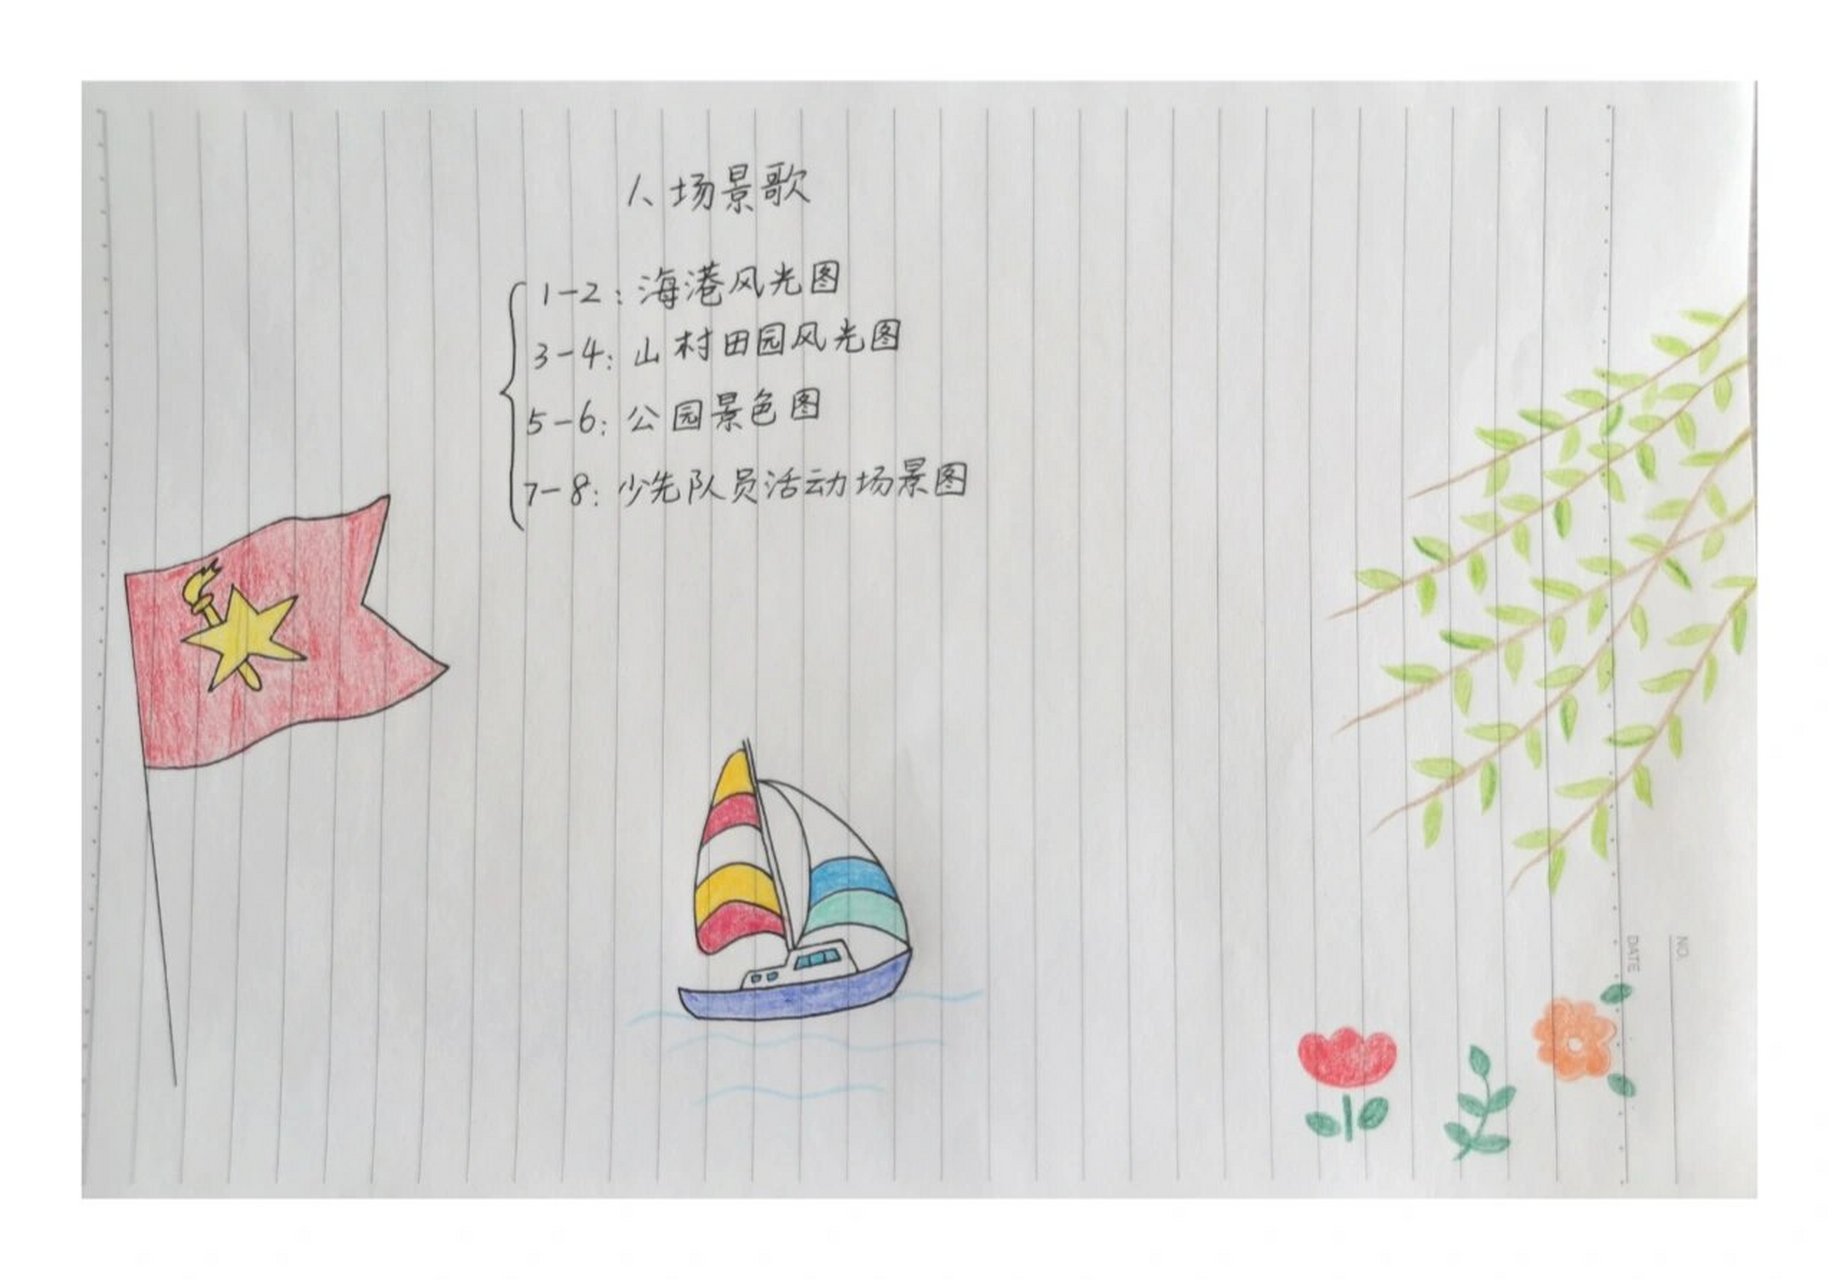 1、场景歌
1-2：海港风光图
3-4：山村田园风光图
5-6：公园景色图
7-8：少先队员活动场景图
NO.
DATE